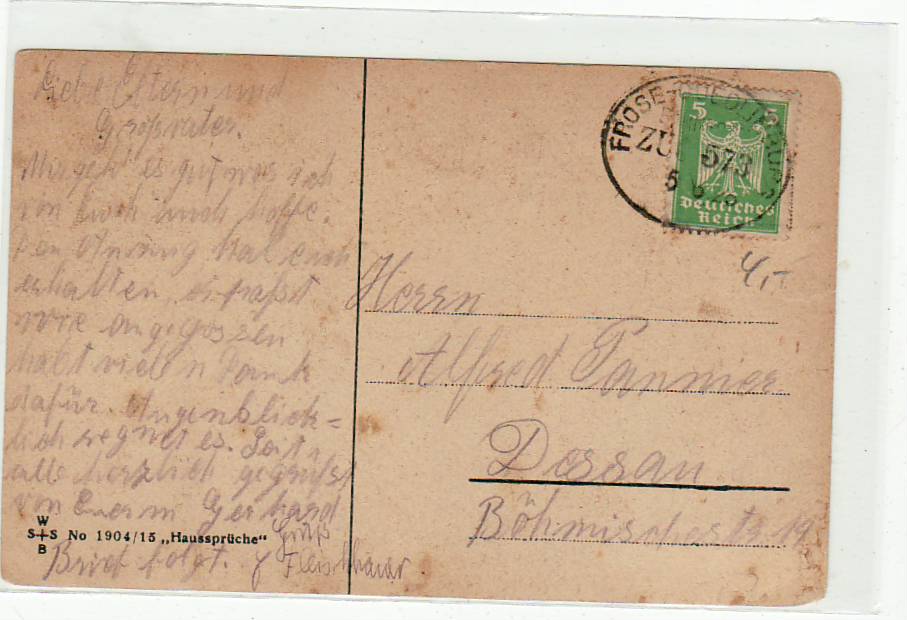 Liebe Eltern und
Großvater.
Mir geht es gut was ich
von Euch auch hoffe.
Den Anzug hab ich
erhalten, er paßt
wie angegossen
habt vielen Dank
dafür. Augenblick=
lich regnet es. Seit
alle herzlich gegrüßt
von Euerm Gerhard
Gruß
Brief folgt. Fleischhauer
W
S+S
B
No 1904/15 „Haussprüche"
FROSE-
ZUG 573
5
5 5
Deutsches
Reich
4,-
Herrn
Alfred Pannier
Dessau
Böhmischestr 19